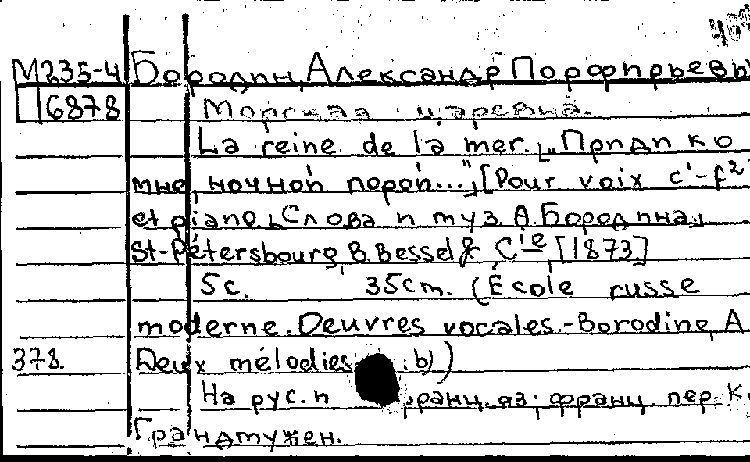 М235-4 Бородин, Александр Порфирьевич
П 6878 Морская царевна.
La reine de la mer. „Приди ко
мне, ночной порой...", [Pour voix c'-f²
et piano. Слова и муз. А. Бородина]
St-Pétersbourg, B. Bessel & Cie [1873]
5c. 35cm. (École russe
moderne. Oeuvres vocales.-Borodine, A
378. Deux mélodies b)
На рус. и франц. яз; франц. пер. К.
Грандмужен.